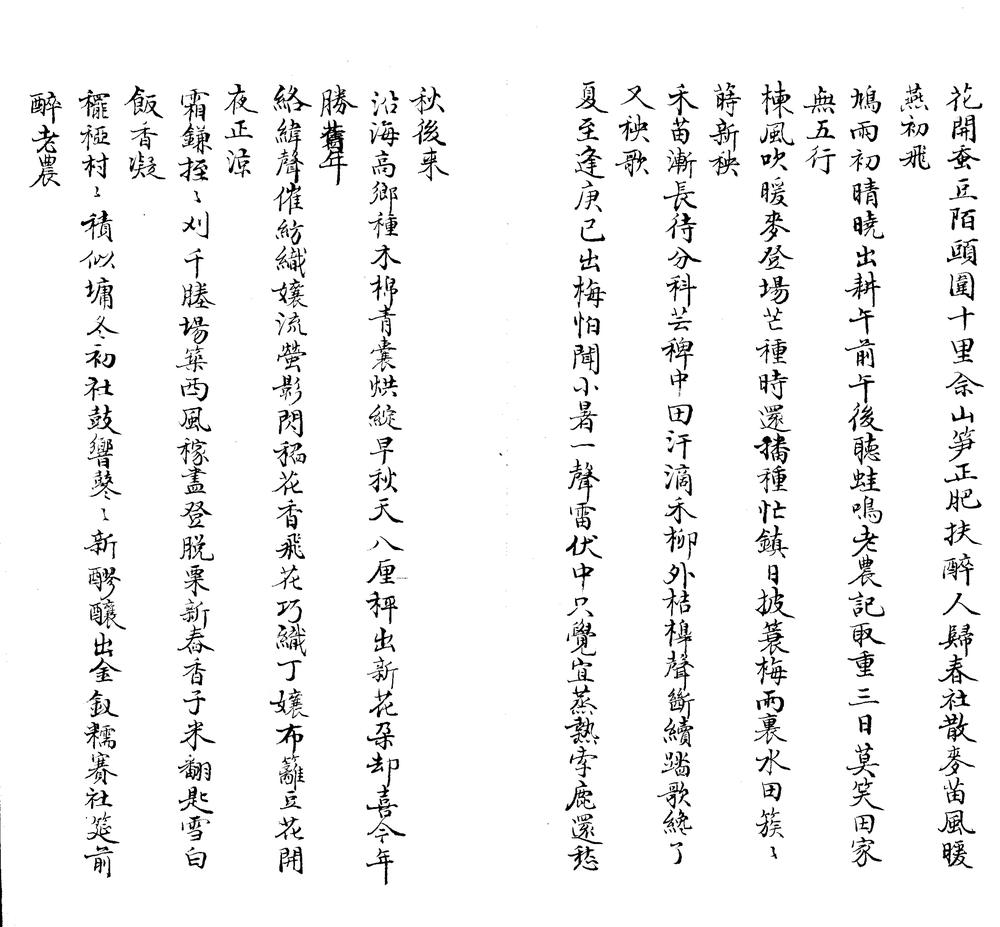 花開蚕豆陌頭圍十里佘山笋正肥扶醉人歸春社散麥苗風暖
燕初飛
鳩雨初晴曉出耕午前午後聽蛙鳴老農記取重三日莫笑田家
無五行
楝風吹暖麥登場芒種時還播種忙鎮日披蓑梅雨裏水田簇〻
蒔新秧
禾苗漸長待分科芸稗中田汗滴禾柳外桔槔聲斷續踏歌纔了
又秧歌
夏至逢庚已出梅怕聞小暑一聲雷伏中只覺宜蒸熱孛鹿還愁
秋後來
沿海高鄉種木棉青囊烘綻早秋天八厘秤出新花朵却喜今年
勝舊年
絡緯聲催紡織孃流螢影閃稻花香飛花巧織丁孃布籬豆花開
夜正涼
霜鎌挃〻刈千塍場築西風稼盡登脫粟新舂香子米翻匙雪白
飯香凝
䆉稏村〻積似墉冬初社鼓響鼕〻新醪釀出金釵糯賽社筵前
醉老農